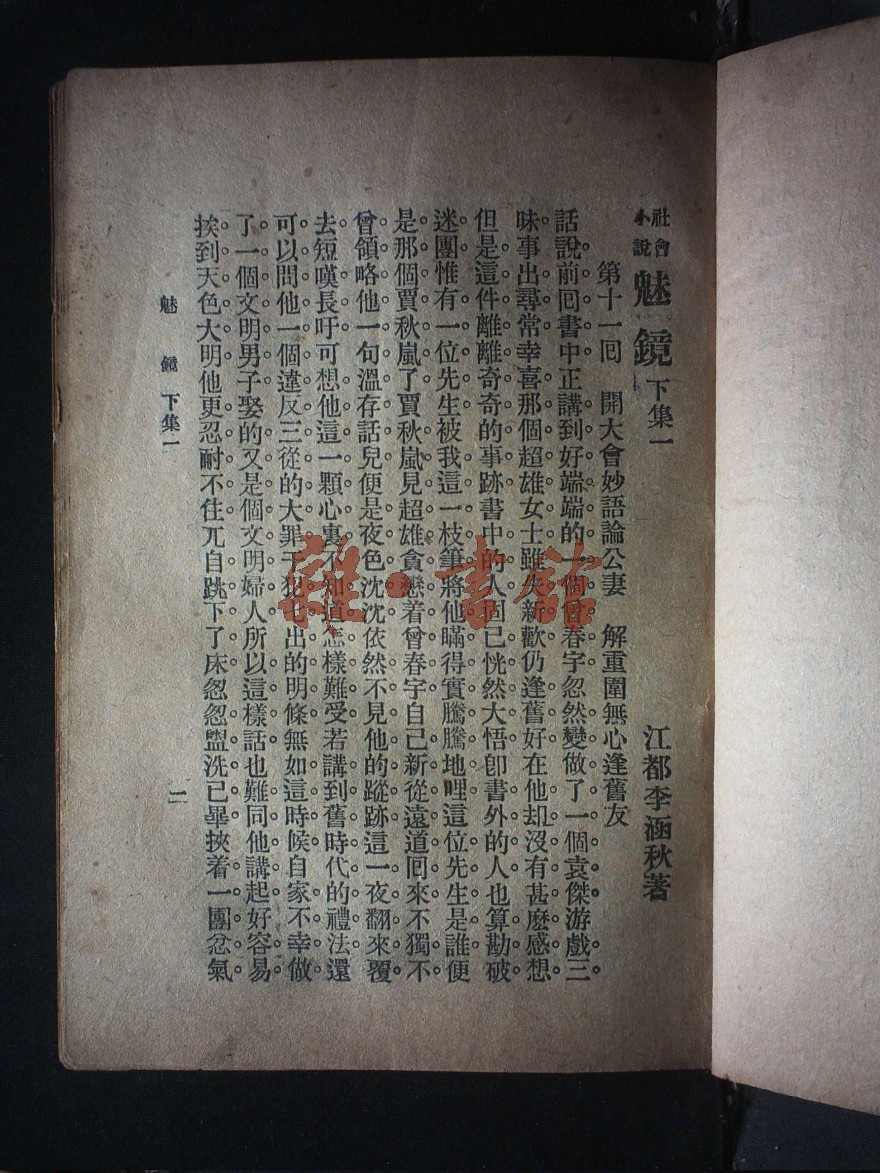 社會小說 魅鏡 下集一
江都李涵秋著
第十一回 開大會妙語論公妻 解重圍無心逢舊友
話說前回書中正講到好端端的一個曾春宇忽然變做了一個袁傑游戲三
昧事出尋常幸喜那個超雄女士雖失新歡仍逢舊好在他却沒有甚麽感想
但是這件離離奇奇的事跡書中的人固已恍然大悟卽書外的人也算勘破
迷團惟有一位先生被我這一枝筆將他瞞得實騰騰地哩這位先生是誰便
是那個賈秋嵐了賈秋嵐見超雄貪戀着曾春宇自己新從遠道回來不獨不
曾領略他一句溫存話兒便是夜色沈沈依然不見他的蹤跡這一夜翻來覆
去短嘆長吁可想他這一顆心裏不知道怎樣難受若講到舊時代的禮法還
可以問他一個違反三從的大罪干犯七出的明條無如這時候自家不幸做
了一個文明男子娶的又是個文明婦人所以這樣話也難同他講起好容易
挨到天色大明他更忍耐不住兀自跳下了床忽忽盥洗已畢挾着一團忿氣
魅鏡 下集一
二
雜·書館